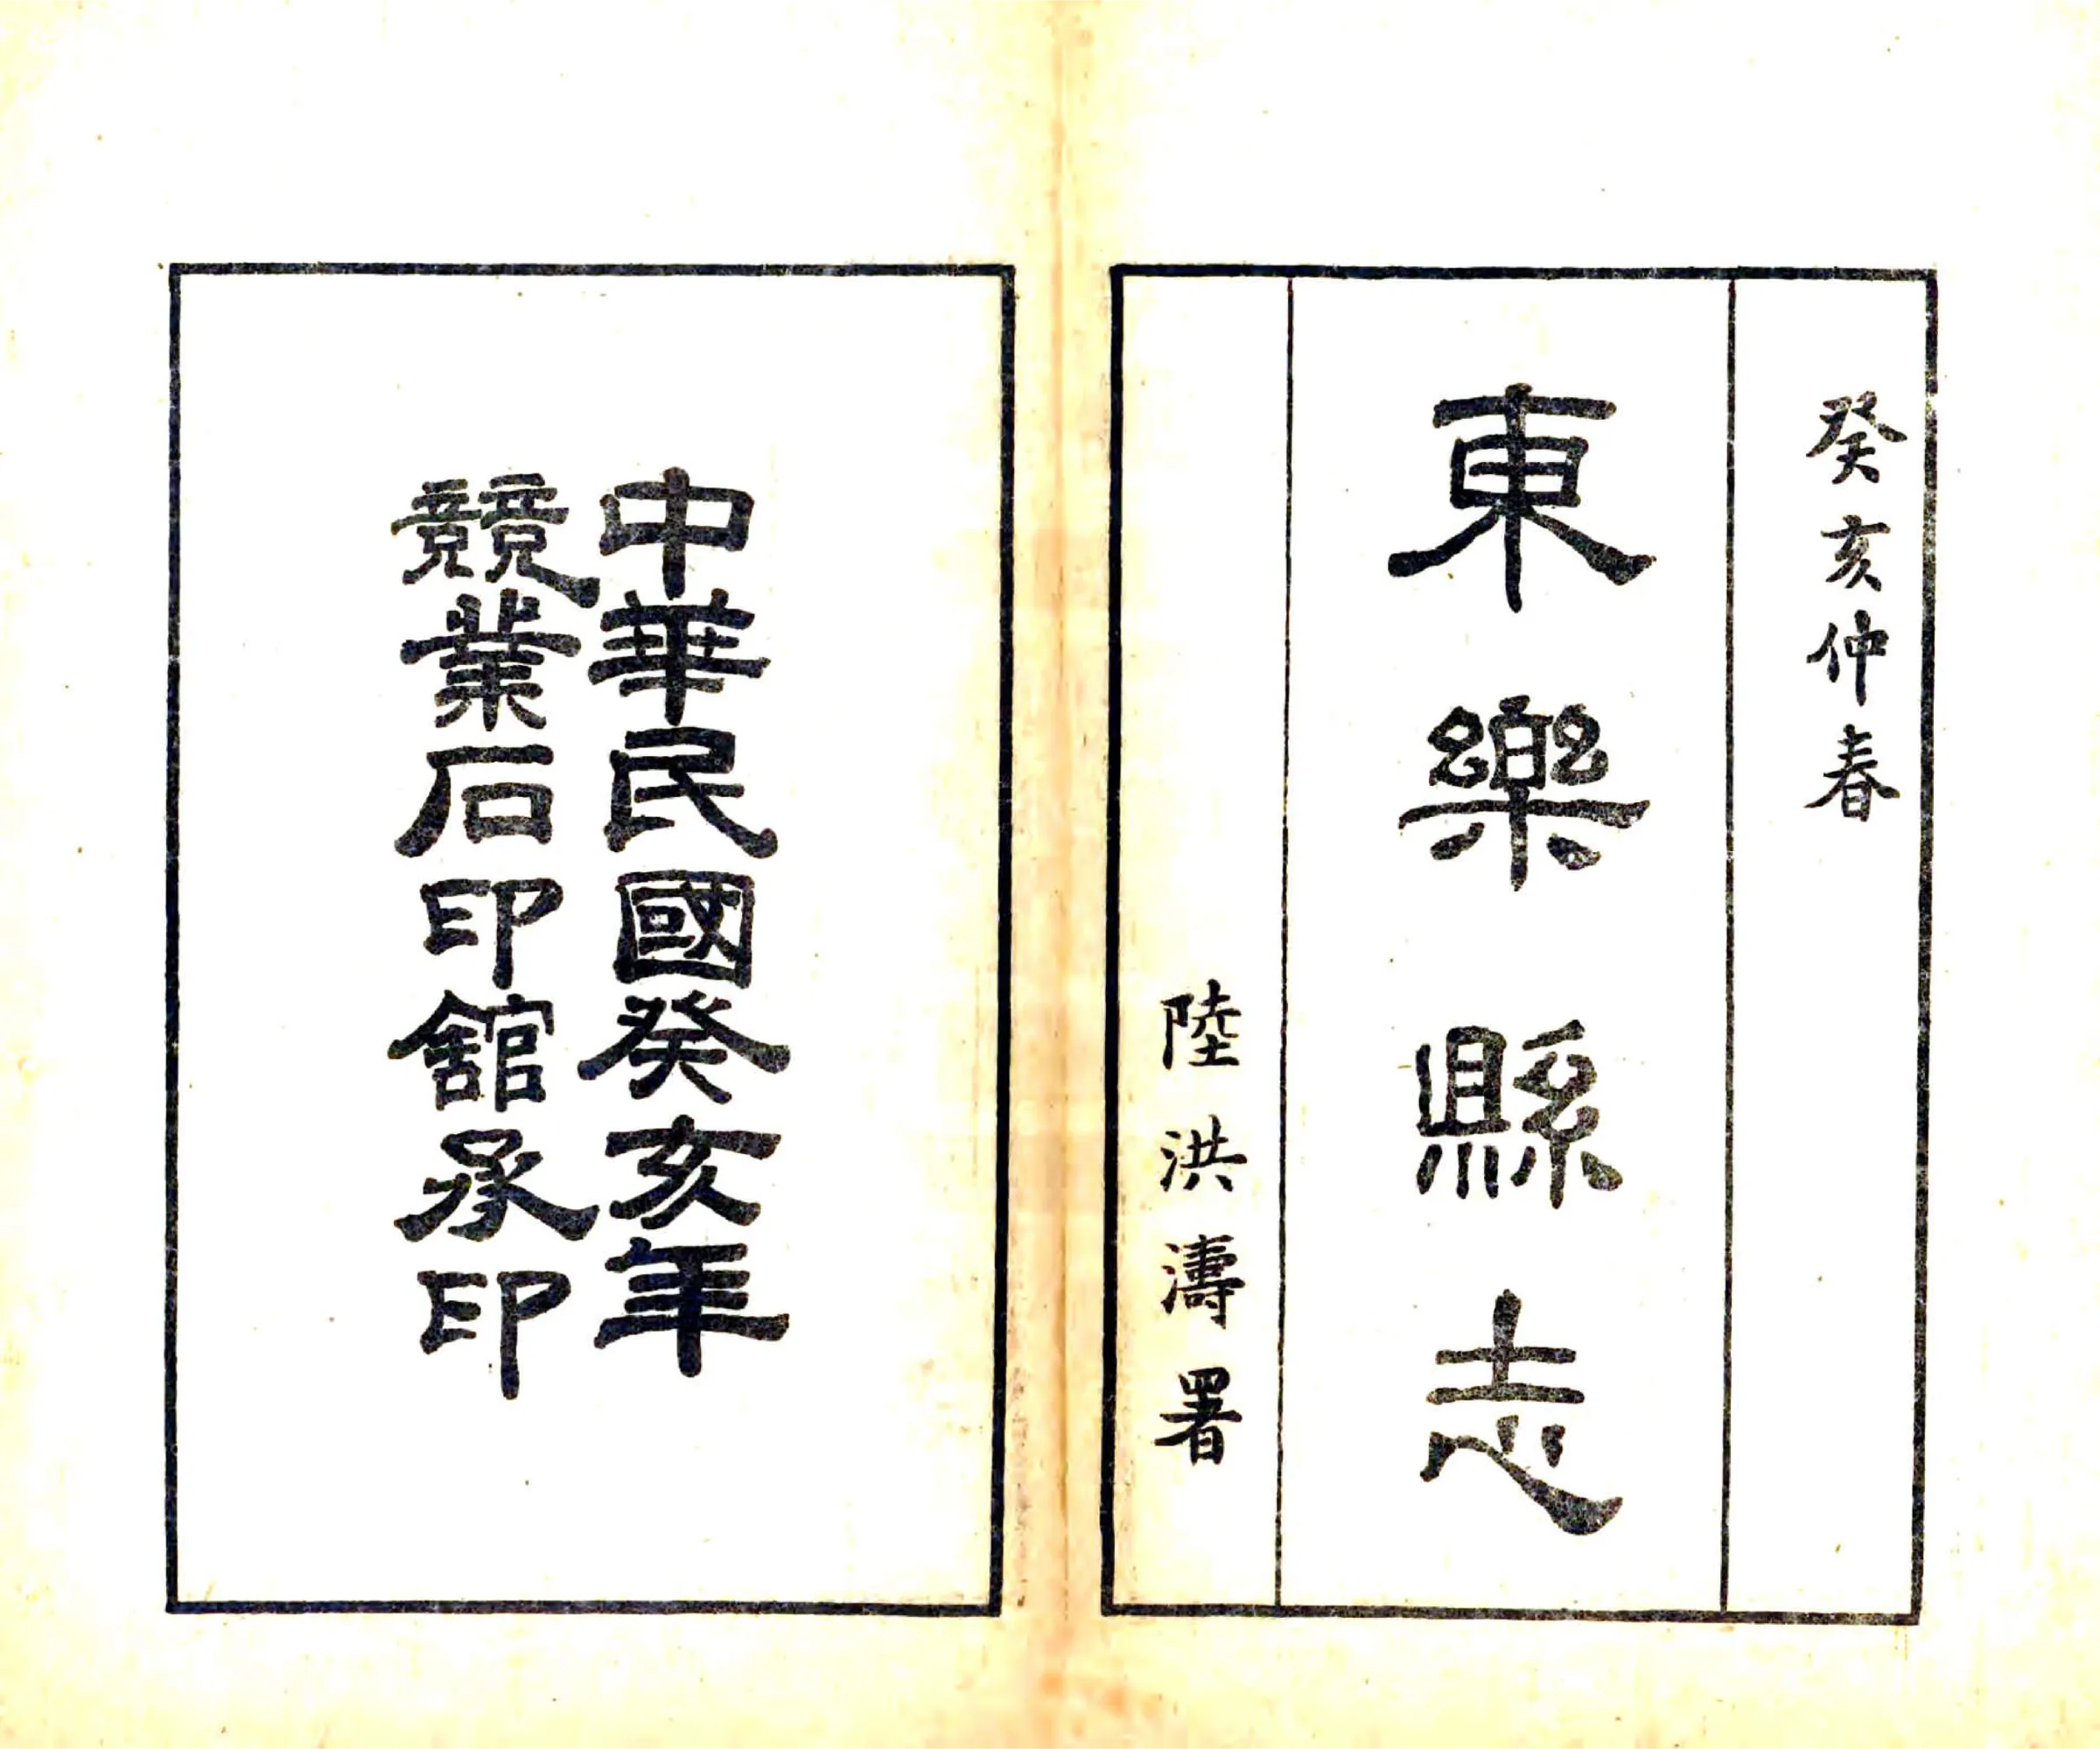 癸亥仲春
東樂縣志
陸洪濤署
中華民國癸亥年
競業石印舘承印